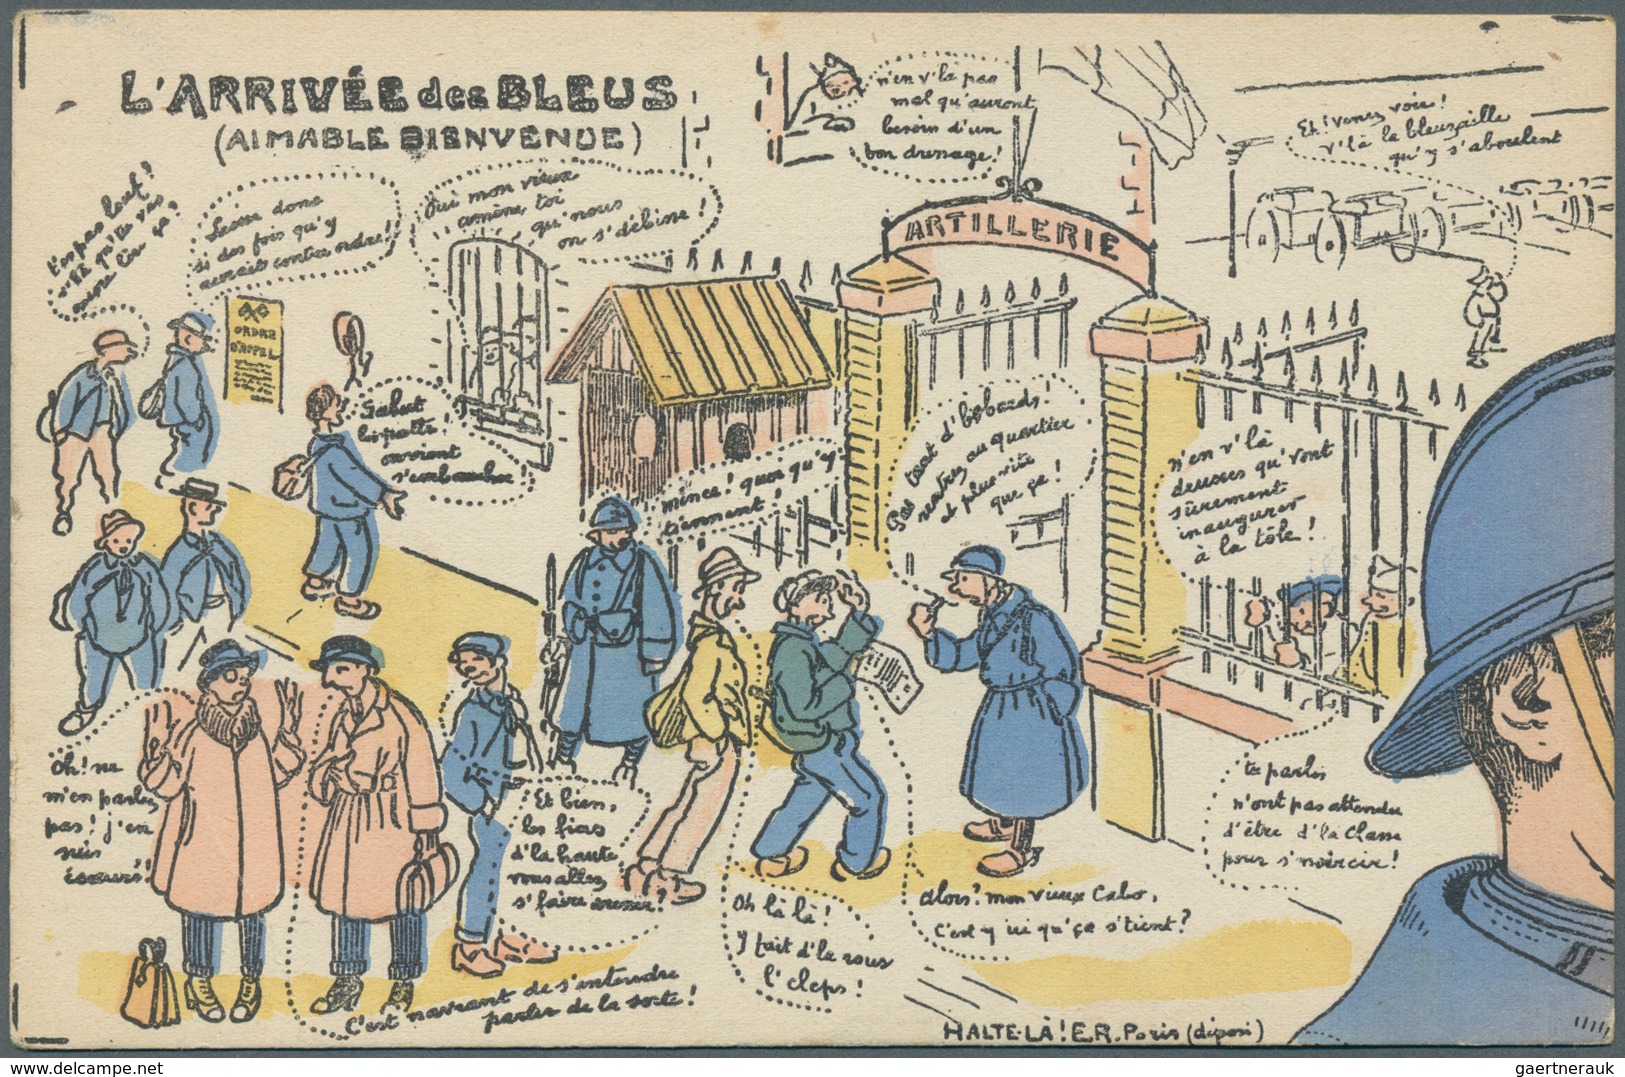 L'ARRIVÉE des BLEUS
(AIMABLE BIENVENUE)
n'en v'là pas
mal qu'auront
besoin d'un
bon dressage!
Eh! venez voir!
v'là la bleusaille
qu'y s'aboulent
T'en pas
v'là qu'tu vas
encore
donc
si des fois qu'y
aurait contre ordre!
Oui mon vieux
amène, toi
qu'nous
on s'débine!
ARTILLERIE
ORDRE
D'APPEL
Salut
on vient
s'embaucher!
mince! quoi qu'y
tiennent!
Pas tant d'bobards!
rentrez au quartier
et plus vite
que ça!
n'en v'là
deusses qu'vont
sûrement
inaugurer
à la tôle!
Oh! ne
m'en parlez
pas! j'en
suis
écœuré!
Et bien,
les fieus
d'la haute
vous allez
s'faire dresser?
tu parles
n'ont pas attendu
d'être d'la classe
pour s'noircir!
Oh là là!
Y fait d'la rous
l'cleps!
Alors! mon vieux Cabo,
C'est y ici qu'ça s'tient?
C'est navrant de s'entendre
parler de la sorte!
HALTE-LÀ! E.R. Paris (déposé)
gaertnerauk